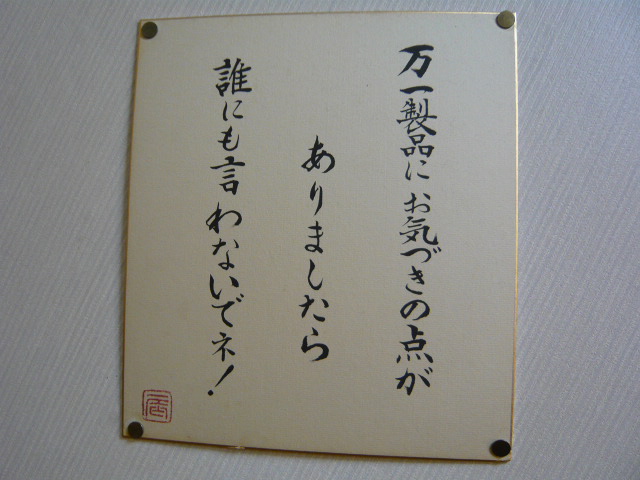 万一製品にお気づきの点が
ありましたら
誰にも言わないでネ!